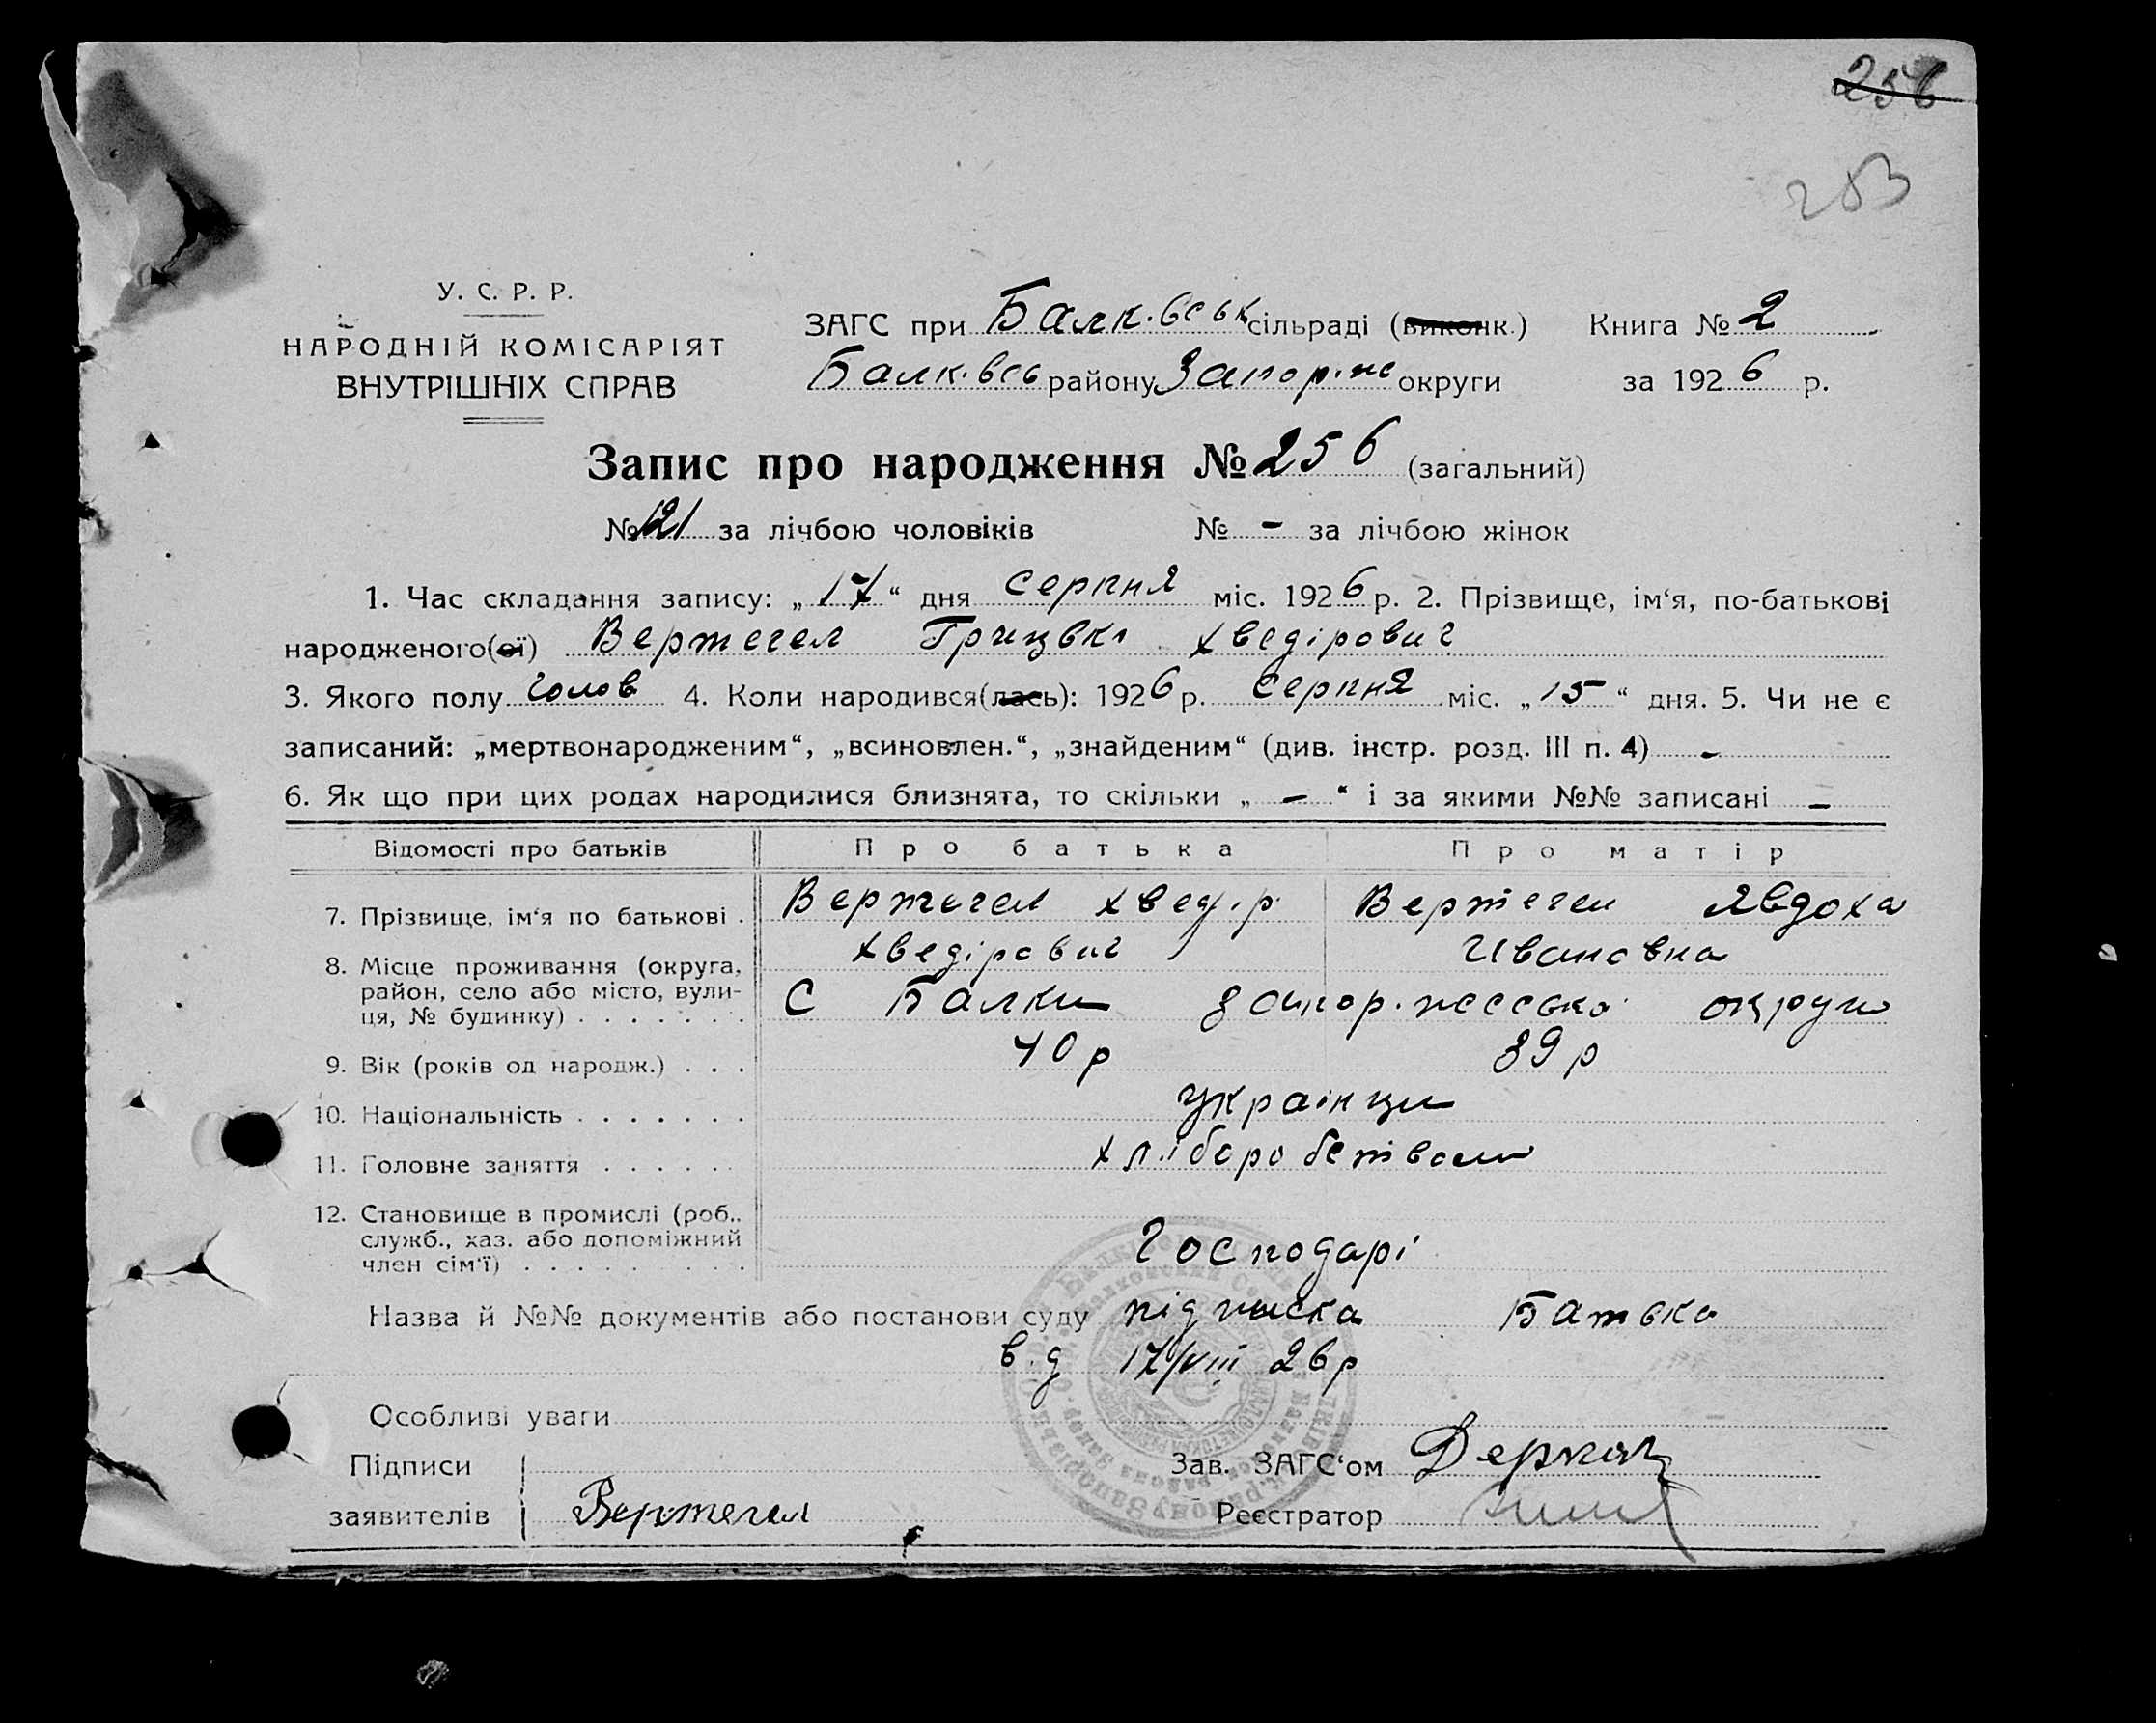 256
253
У. С. Р. Р.
НАРОДНІЙ КОМІСАРІЯТ
ВНУТРІШНІХ СПРАВ
ЗАГС при Балк.вськ сільраді (виконк.) Книга № 2
Балк.всь району Запор.жс округи за 1926 р.
Запис про народження № 256 (загальний)
№ 121 за лічбою чоловіків № - за лічбою жінок
1. Час складання запису: „17“ дня серпня міс. 1926 р. 2. Прізвище, ім‘я, по-батькові
народженого(ої) Вертегел Грицько Хведірович
3. Якого полу чолов 4. Коли народився(лась): 1926 р. серпня міс. „15“ дня. 5. Чи не є
записаний: „мертвонародженим“, „всиновлен.“, „знайденим“ (див. інстр. розд. III п. 4) -
6. Як що при цих родах народилися близнята, то скільки „ - “ і за якими №№ записані -
Відомості про батьків Про батька Про матір
7. Прізвище, ім‘я по батькові . Вертегел Хвед.р Вертегел Явдоха
Хведірович Ивановна
8. Місце проживання (округа,
район, село або місто, вули-
ця, № будинку) . . . . . . . С Балки Запор.жсська округи
9. Вік (років од народж.) . . . 40 р 39 р
10. Національність . . . . . . . українци
11. Головне заняття . . . . . хліборобством
12. Становище в промислі (роб..
служб., хаз. або допоміжний
член сім‘ї) . . . . . . . . . Господарі
Назва й №№ документів або постанови суду підписка Батька
в.д 17/VIII 26 р
Особливі уваги
Підписи Зав. ЗАГС‘ом Держак
заявителів Вертегел Реєстратор